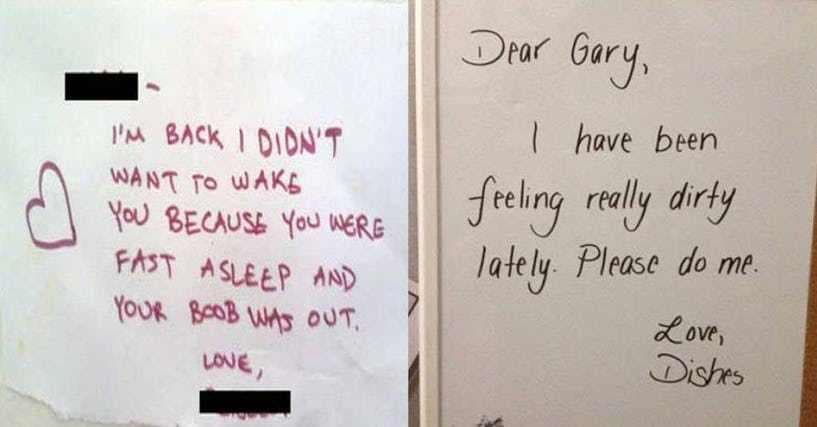 I'M BACK I DIDN'T
WANT TO WAKE
YOU BECAUSE YOU WERE
FAST ASLEEP AND
YOUR BOOB WAS OUT.
LOVE,
Dear Gary,
I have been
feeling really dirty
lately. Please do me.
Love,
Dishes